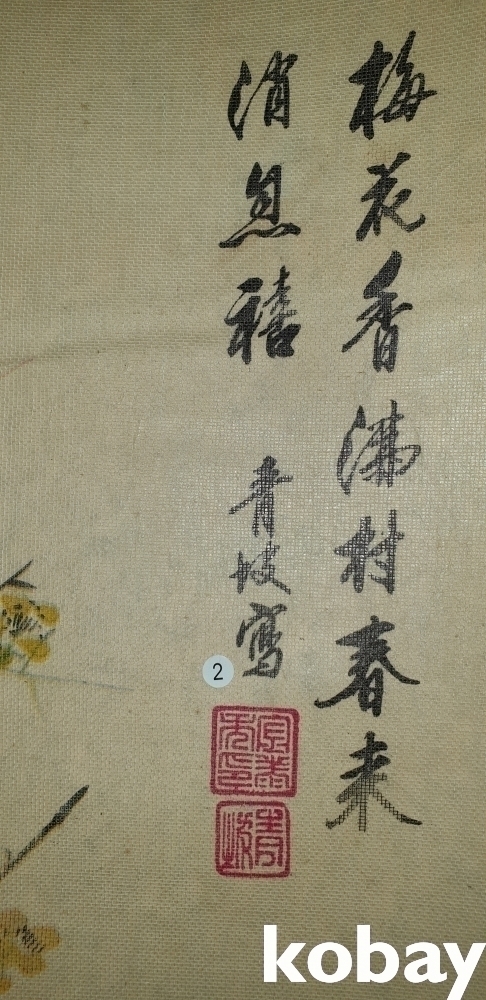 梅花香満村春来
消息禧
青坡寫
2
青坡
kobay